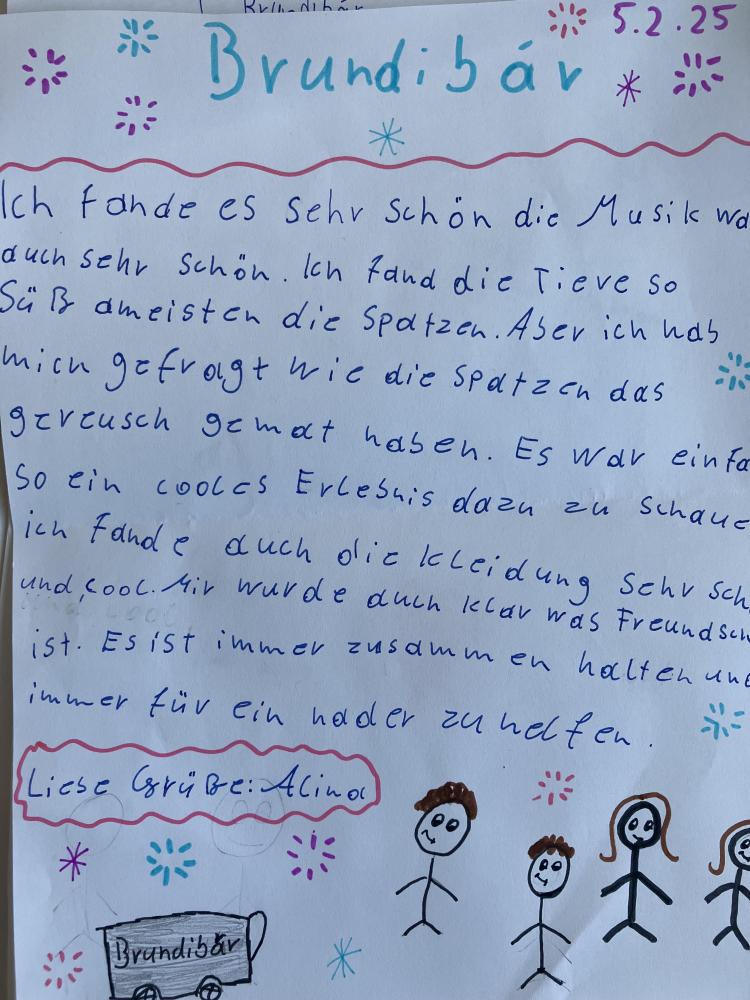 Brundibár
5.2.25
Brundibár
Ich fande es sehr schön die Musik wa
auch sehr schön. Ich fand die Tieve so
Süß ameisten die Spatzen. Aber ich hab
mich gefragt wie die Spatzen das
gereusch gemat haben. Es war einfa
So ein cooles Erlebnis dazu zu schaue
ich fande auch die Kleidung sehr sch
und cool. Mir wurde auch klar was Freundsch
ist. Es ist immer zusammen halten und
immer für ein nader zu helfen.
Liebe Grüße: Alina
Brundibár